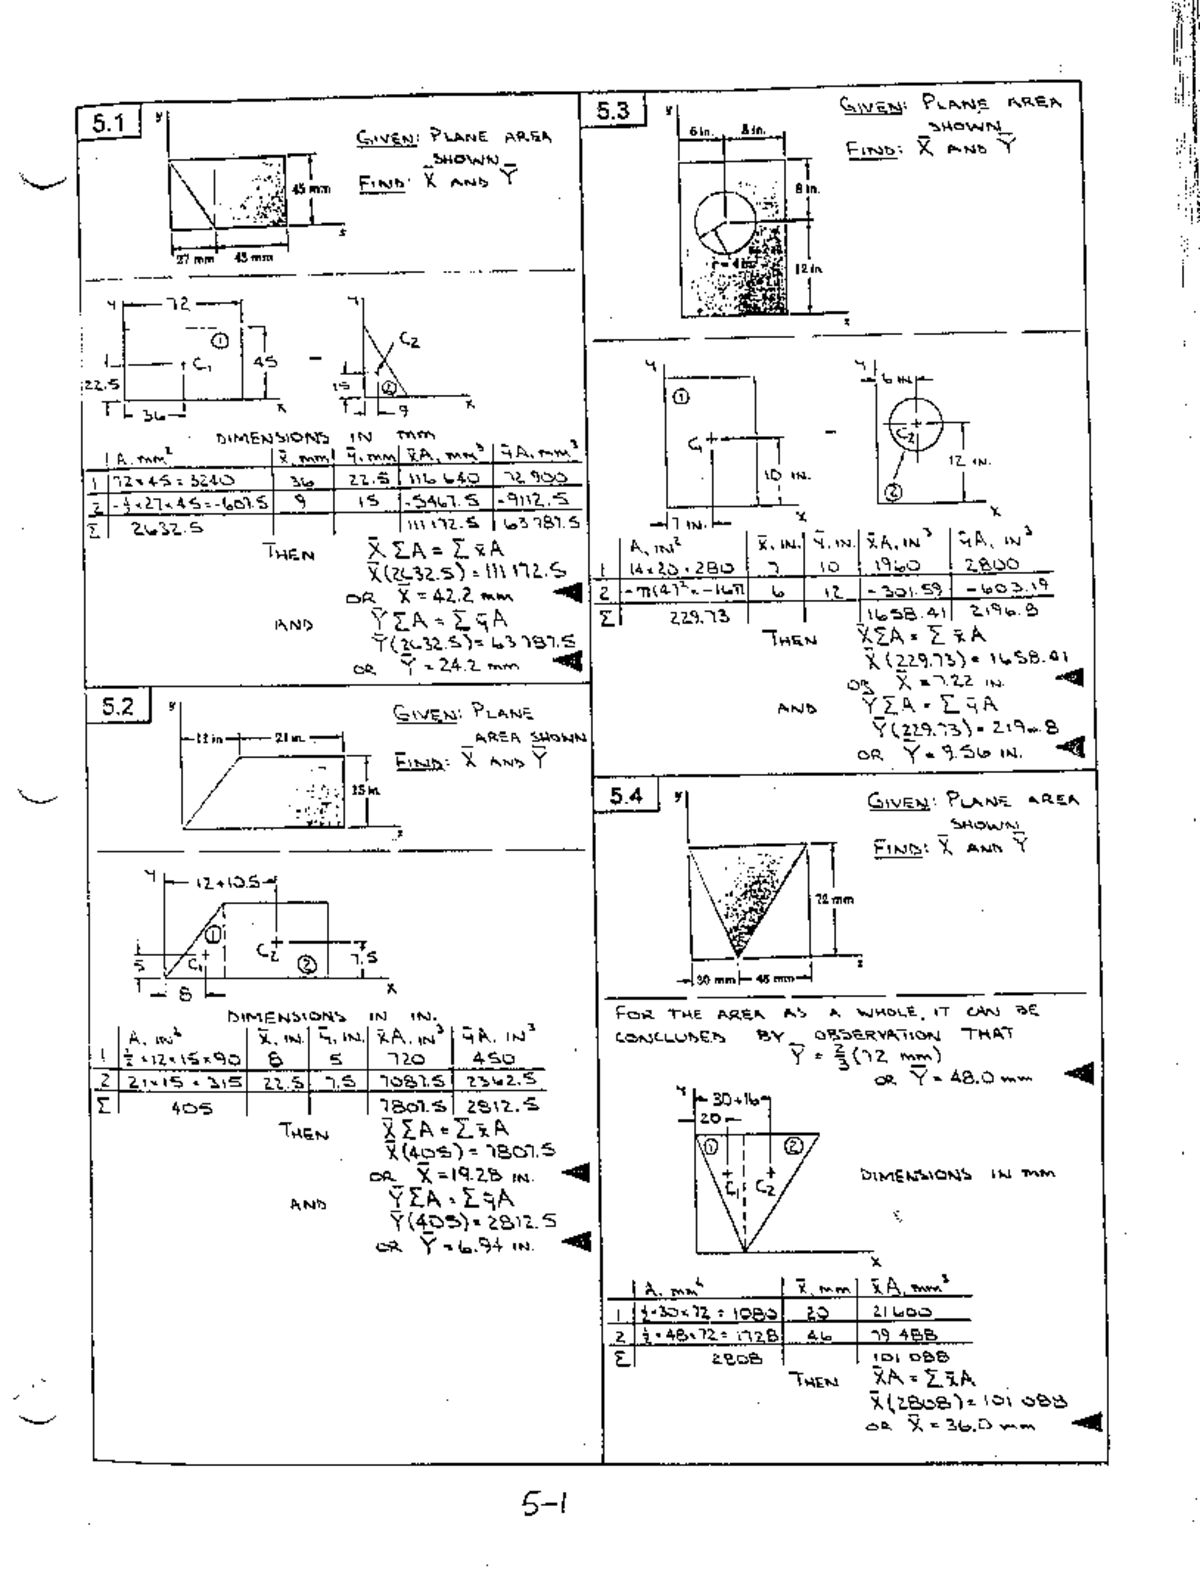 5.1
y
GIVEN: PLANE AREA
SHOWN
FIND: X̄ AND Ȳ
45 mm
x
27 mm 45 mm
y 72
①
C₁ 45
22.5
36 x
−
y
C₂
15 ②
9 x
DIMENSIONS IN mm
A, mm² x̄, mm ȳ, mm x̄A, mm³ ȳA, mm³
1 72×45 = 3240 36 22.5 116 640 72 900
2 -½×27×45 = -607.5 9 15 -5467.5 -9112.5
Σ 2632.5 111 172.5 63 787.5
THEN X̄ΣA = Σx̄A
X̄(2632.5) = 111 172.5
OR X̄ = 42.2 mm
AND ȲΣA = ΣȳA
Ȳ(2632.5) = 63 787.5
OR Ȳ = 24.2 mm
5.2
y
GIVEN: PLANE
AREA SHOWN
FIND: X̄ AND Ȳ
12 in. 21 in.
15 in.
x
y 12+10.5
①
C₁ C₂ ②
5 7.5
8 x
DIMENSIONS IN IN.
A, IN² x̄, IN. ȳ, IN. x̄A, IN³ ȳA, IN³
1 ½×12×15×90 8 5 720 450
2 21×15 = 315 22.5 7.5 7087.5 2362.5
Σ 405 7807.5 2812.5
THEN X̄ΣA = Σx̄A
X̄(405) = 7807.5
OR X̄ = 19.28 IN.
AND ȲΣA = ΣȳA
Ȳ(405) = 2812.5
OR Ȳ = 6.94 IN.
5.3
y
GIVEN: PLANE AREA
SHOWN
FIND: X̄ AND Ȳ
6 in. 8 in.
8 in.
r = 4 in.
12 in.
x
y
①
C₁
10 IN.
7 IN. x
−
y 6 IN.
C₂
12 IN.
②
x
A, IN² x̄, IN. ȳ, IN. x̄A, IN³ ȳA, IN³
1 14×20 = 280 7 10 1960 2800
2 -π(4)² = -16π 6 12 -301.59 -603.19
Σ 229.73 1658.41 2196.8
THEN X̄ΣA = Σx̄A
X̄(229.73) = 1658.41
OR X̄ = 7.22 IN.
AND ȲΣA = ΣȳA
Ȳ(229.73) = 2196.8
OR Ȳ = 9.56 IN.
5.4
y
GIVEN: PLANE AREA
SHOWN
FIND: X̄ AND Ȳ
72 mm
x
30 mm 48 mm
FOR THE AREA AS A WHOLE, IT CAN BE
CONCLUDED BY OBSERVATION THAT
Ȳ = ⅔(72 mm)
OR Ȳ = 48.0 mm
y 30+16
20
① ②
C₁ C₂
x
DIMENSIONS IN mm
A, mm² x̄, mm x̄A, mm³
1 ½×30×72 = 1080 20 21 600
2 ½×48×72 = 1728 46 79 488
Σ 2808 101 088
THEN X̄A = Σx̄A
X̄(2808) = 101 088
OR X̄ = 36.0 mm
5-1